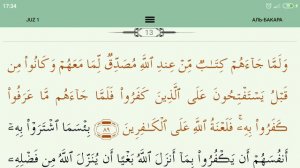 17:34
JUZ 1
АЛЬ-БАКАРА
13
وَلَمَّا جَاءَهُمْ كِتَابٌ مِّنْ عِندِ اللَّهِ مُصَدِّقٌ لِّمَا مَعَهُمْ وَكَانُوا مِن
قَبْلُ يَسْتَفْتِحُونَ عَلَى الَّذِينَ كَفَرُوا فَلَمَّا جَاءَهُم مَّا عَرَفُوا
كَفَرُوا بِهِ ۚ فَلَعْنَةُ اللَّهِ عَلَى الْكَافِرِينَ ٨٩ بِئْسَمَا اشْتَرَوْا بِهِ
أَنفُسَهُمْ أَن يَكْفُرُوا بِمَا أَنزَلَ اللَّهُ بَغْيًا أَن يُنَزِّلَ اللَّهُ مِن فَضْلِهِ